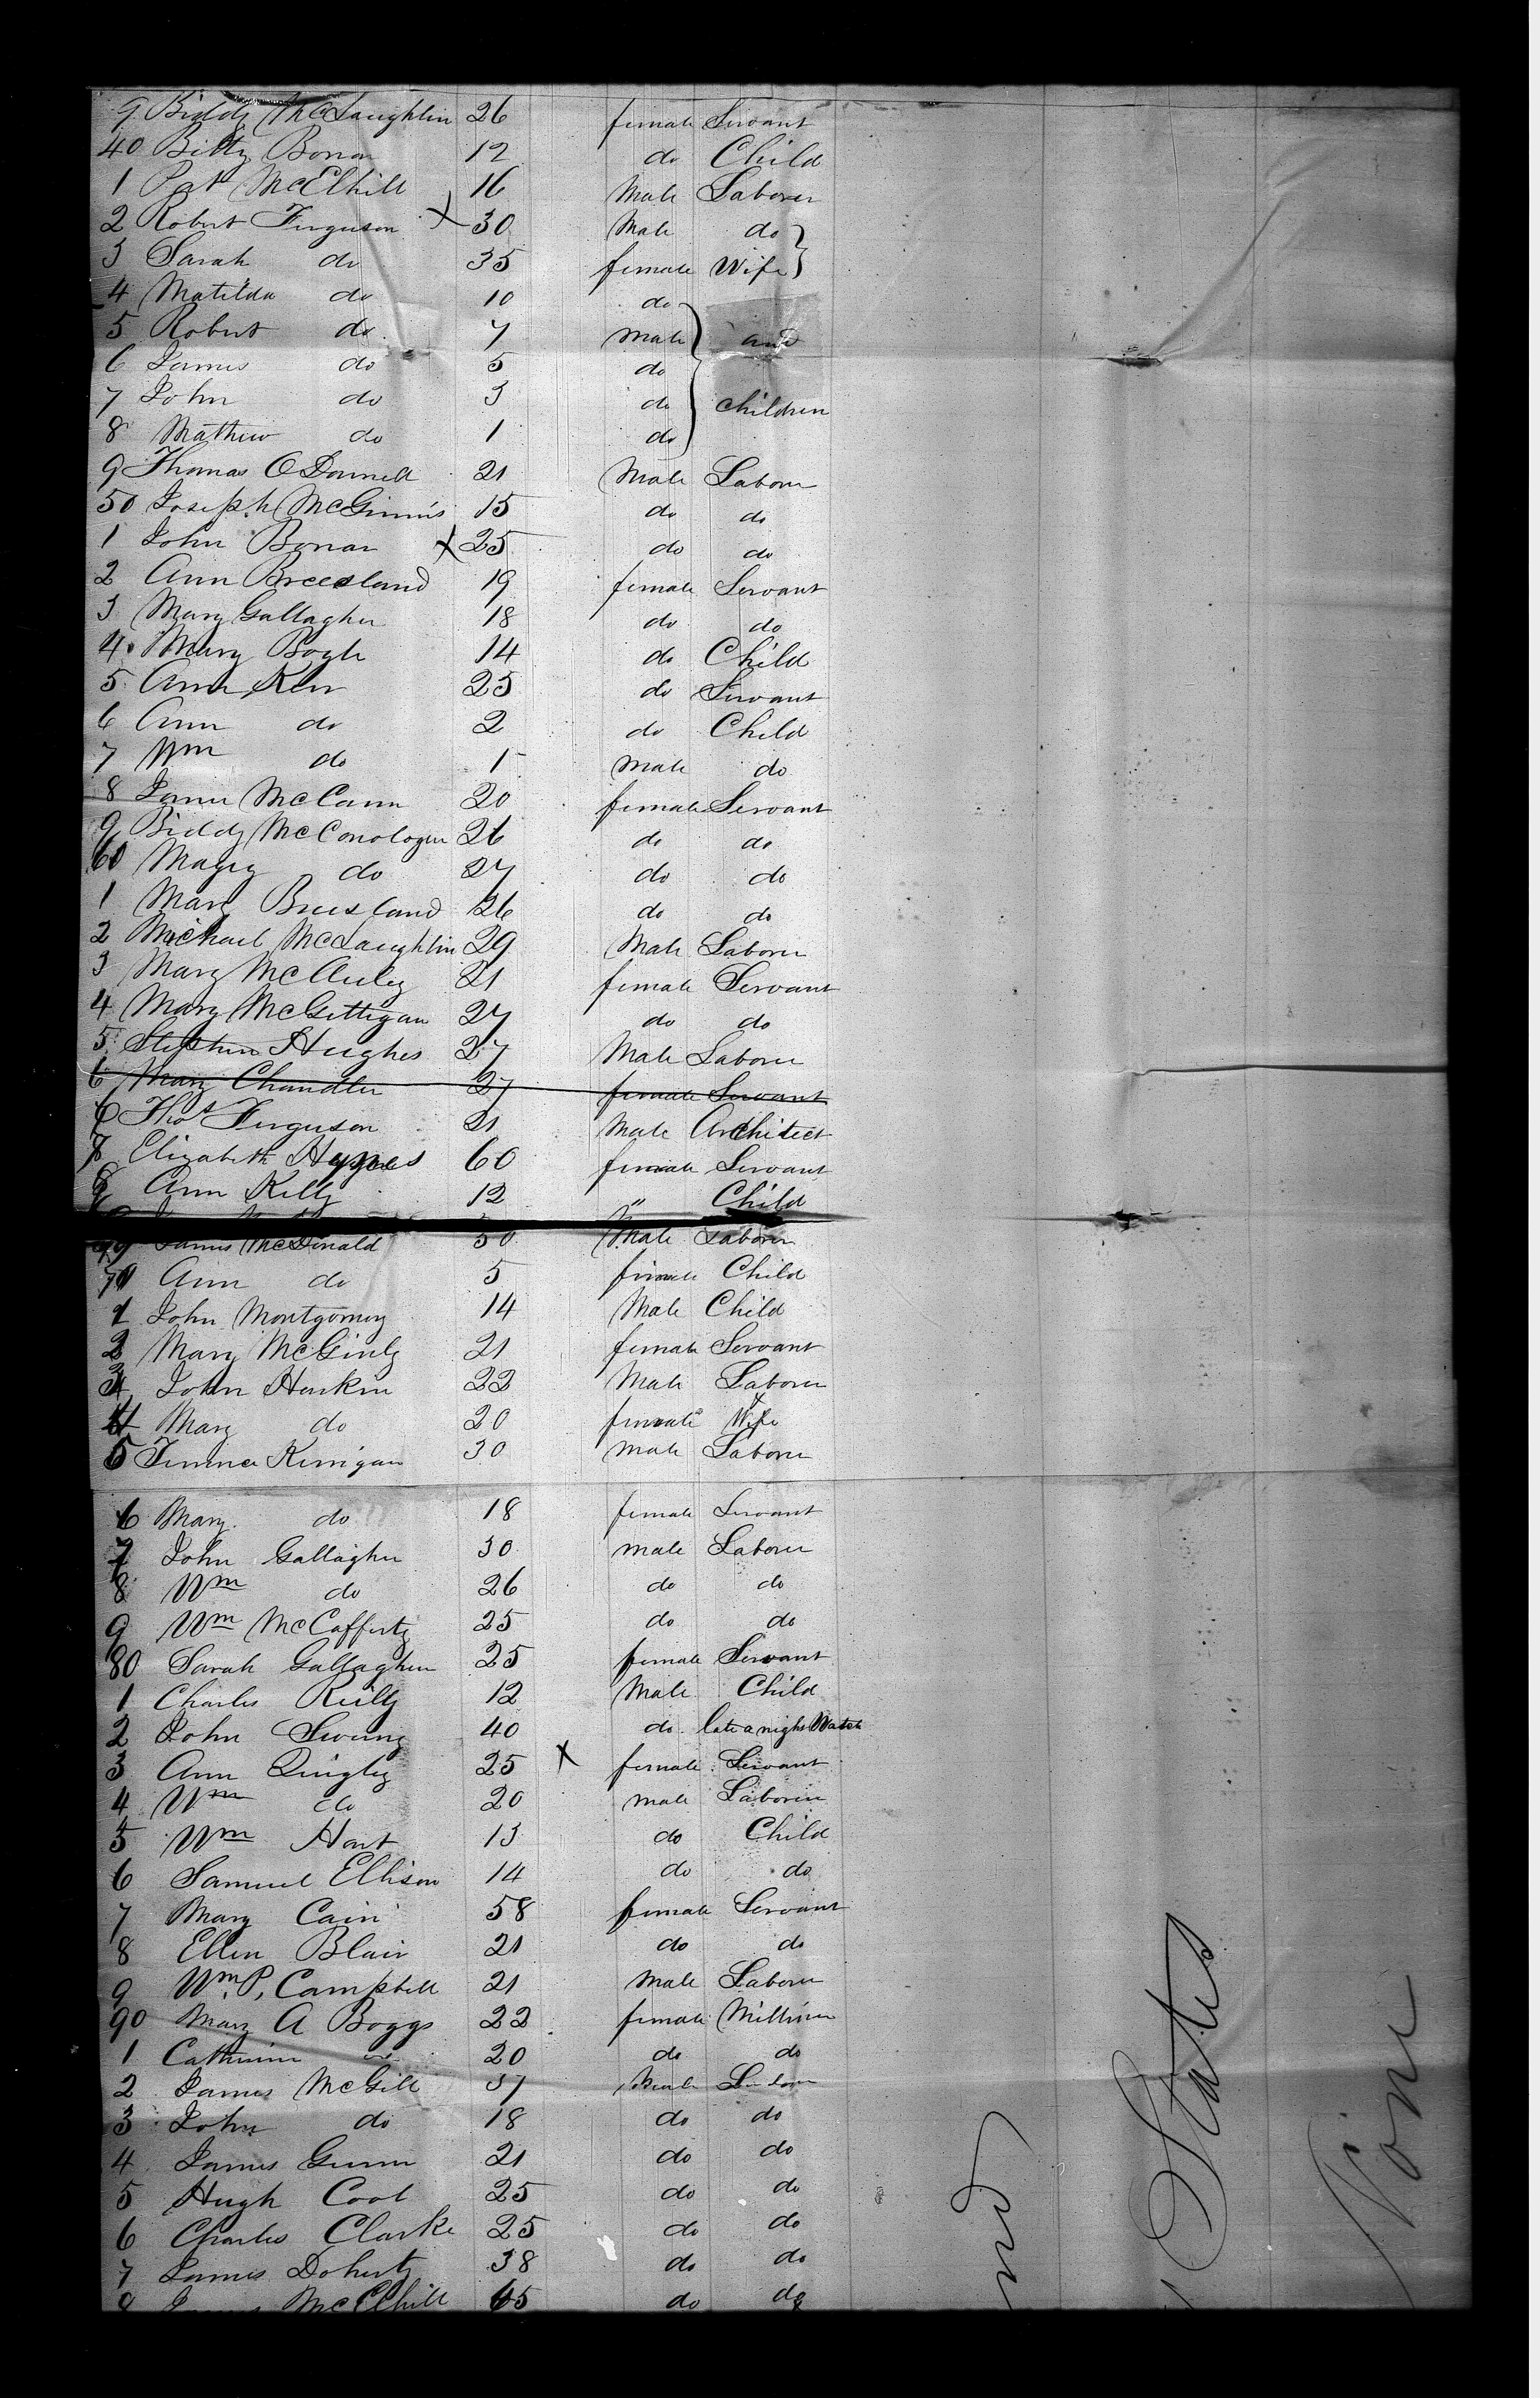 9 Biddy McLaughlin 26 female Servant
40 Bitty Bonar 12 do Child
1 Pat McElhill 16 Male Laborer
2 Robert Ferguson X 30 Male do
3 Sarah do 35 female Wife
4 Matilda do 10 do
5 Robert do 7 Male and
6 James do 5 do
7 John do 3 do children
8 Mathew do 1 do
9 Thomas O Donnell 21 Male Laborer
50 Joseph McGinnis 15 do do
1 John Bonar X 25 do do
2 Ann Breesland 19 female Servant
3 Mary Gallagher 18 do do
4 Mary Bogle 14 do Child
5 Ann Kerr 25 do Servant
6 Ann do 2 do Child
7 Wm do 1 male do
8 McCann 20 female Servant
9 Biddy McConologue 26 do do
60 do 27 do do
1 Mary Breesland 26 do do
2 Michael McLaughlin 29 Male Laborer
3 Mary McAuley 21 female Servant
4 Mary McGettigan 27 do do
5 Stephen Hughes 27 Male Laborer
6 Mary Chandler 27 female Servant
6 Thos Ferguson 21 Male Architect
7 Elizabeth 60 female Servant
8 Ann Kelly 12 " Child
69 James McDonald 50 Male Laborer
70 Ann do 5 female Child
1 John Montgomery 14 Male Child
2 Mary McGinly 21 female Servant
3 John Harkin 22 Male Laborer
4 Mary do 20 female Wife
5 Terence Kerrigan 30 male Laborer
6 Mary do 18 female Servant
7 John Gallagher 30 male Laborer
8 Wm do 26 do do
9 Wm McCafferty 25 do do
80 Sarah Gallagher 25 female Servant
1 Charles Reilly 12 Male Child
2 John 40 do late a night Watch
3 Ann Quigley 25 X female Servant
4 Wm do 20 male Laborer
5 Wm Hart 13 do Child
6 Samuel Ellison 14 do do
7 Mary Cain 58 female Servant
8 Ellen Blair 21 do do
9 Wm. P. Campbell 21 Male Laborer
90 Mary A Boggs 22 female Milliner
1 Catherine do 20 do do
2 James McGill 37 Male Laborer
3 John do 18 do do
4 James Gunn 21 do do
5 Hugh Cool 25 do do
6 Charles Clarke 25 do do
7 James Doherty 38 do do
8 James McElhill 65 do do
States
None